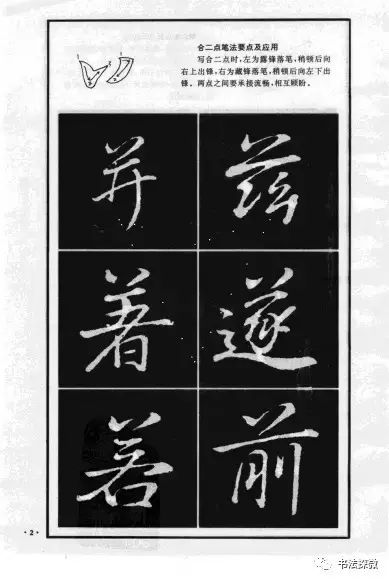 合二点笔法要点及应用
写合二点时，左为露锋落笔，稍顿后向
右上出锋，右为藏锋落笔，稍顿后向左下出
锋。两点之间要承接流畅，相互顾盼。
并 兹
著 遂
若 前
·2·
书法探教